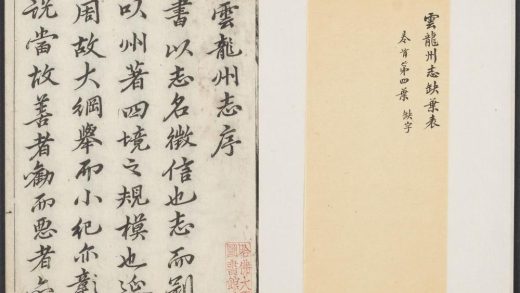 雲龍州志缺葉表
卷首第四葉 缺字
雲龍州志序
書以志名徵信也志而別
以州著四境之規模也
周故大綱舉而小紀亦彰
說當故善者勸而惡者
哈佛大
圖書館